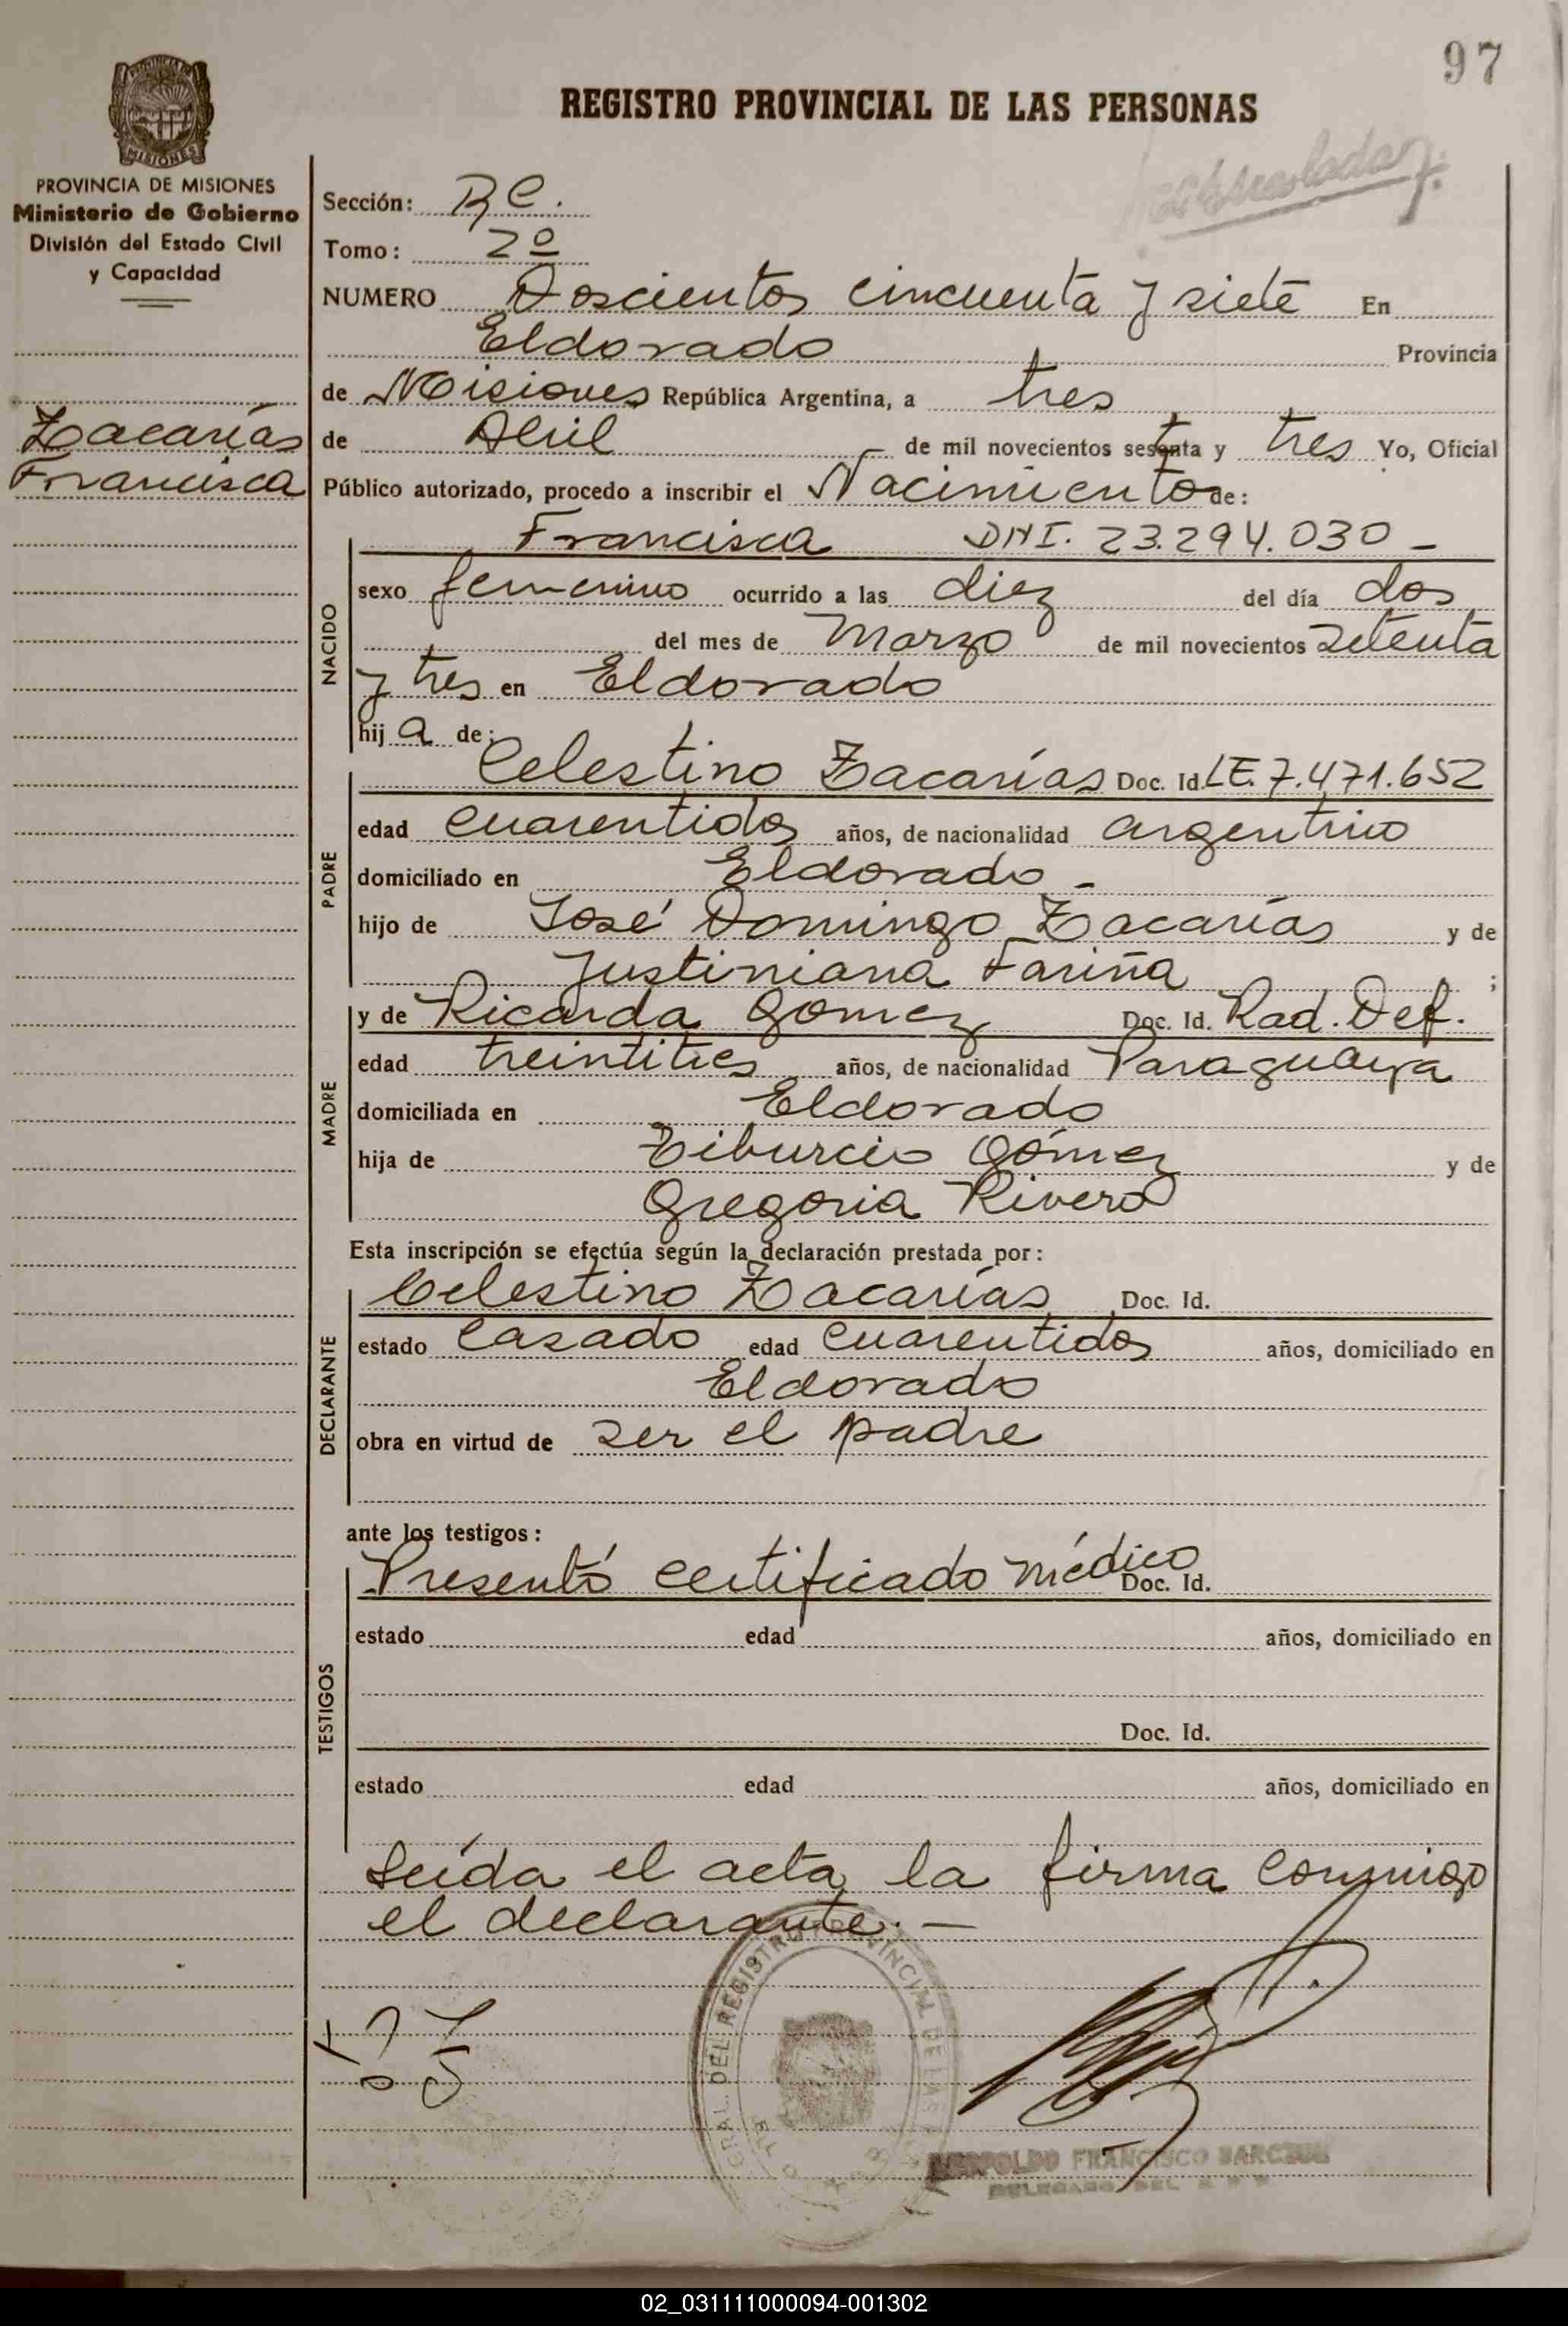 97
REGISTRO PROVINCIAL DE LAS PERSONAS
MISIONES
PROVINCIA DE MISIONES
Ministerio de Gobierno
División del Estado Civil
y Capacidad
Zacarías
Francisca
Sección:
Tomo: 2º
NUMERO Doscientos cincuenta y siete En
Eldorado Provincia
de Misiones República Argentina, a tres
de Abril de mil novecientos setenta y tres Yo, Oficial
Público autorizado, procedo a inscribir el Nacimiento de:
NACIDO
Francisca DNI. 23.294.030 -
sexo femenino ocurrido a las diez del día dos
del mes de Marzo de mil novecientos setenta
y tres en Eldorado
hij a de:
PADRE
Celestino Zacarías Doc. Id. LE. 7.471.652
edad cuarentidos años, de nacionalidad argentino
domiciliado en Eldorado -
hijo de José Domingo Zacarías y de
Justiniana Fariña ;
MADRE
y de Ricarda Gomez Doc. Id. Rad. Def.
edad treintitres años, de nacionalidad Paraguaya
domiciliada en Eldorado
hija de Tiburcio Gómez y de
Gregoria Rivero
Esta inscripción se efectúa según la declaración prestada por:
DECLARANTE
Celestino Zacarías Doc. Id.
estado casado edad cuarentidos años, domiciliado en
Eldorado
obra en virtud de ser el padre
ante los testigos:
TESTIGOS
Presentó certificado médico Doc. Id.
estado edad años, domiciliado en
Doc. Id.
estado edad años, domiciliado en
Leída el acta, la firma conmigo
el declarante. —
DEL REGISTRO PROVINCIAL DE LAS
FRANCISCO
02_031111000094-001302